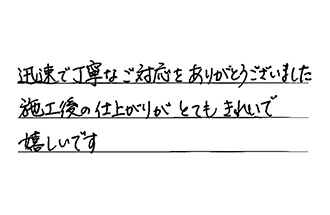 迅速で丁寧なご対応をありがとうございました
施工後の仕上がりがとてもきれいで
嬉しいです